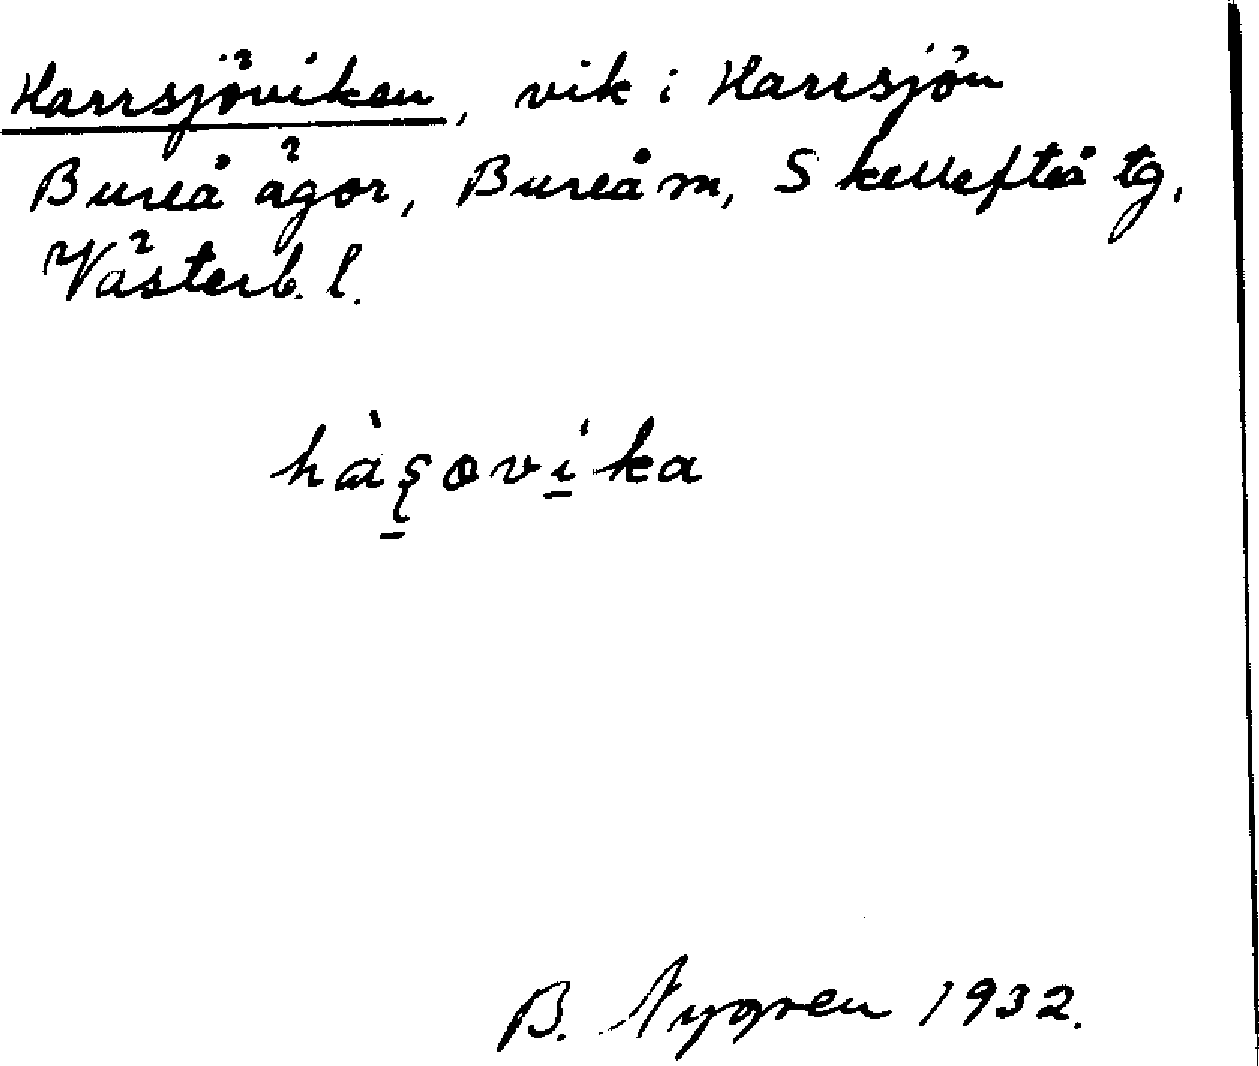 Harrsjöviken, vik i Harrsjön
Bureå ägor, Bureå m, Skellefteå tg,
Västerb. l.
hàʂovika
B. Nygren 1932.